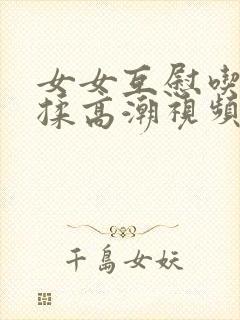 女女互慰喫
揉高潮視頻
千島女妖